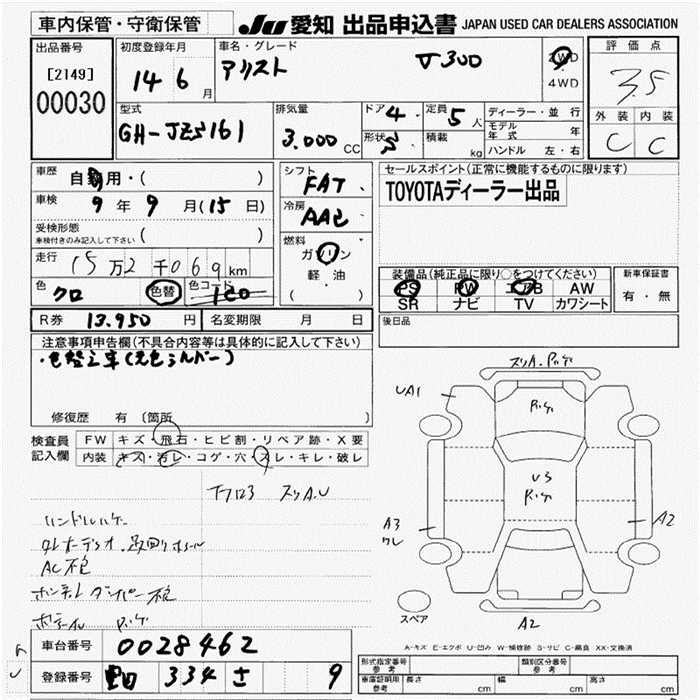 車内保管・守衛保管 JU 愛知 出品申込書 JAPAN USED CAR DEALERS ASSOCIATION
出品番号 初度登録年月 車名・グレード 評価点
[2149] 14 6月 アリスト V300 2WD・4WD 3.5
00030 型式 排気量 ドア 4 定員 5人 ディーラー・並行 外装 内装
GH-JZS161 3.000CC 形状 積載 kg モデル年式 年 C C
ハンドル 左・右
車歴 自家用・( ) シフト FAT セールスポイント(正常に機能するものに限ります)
車検 9年9月(15日) 冷房 AAC TOYOTAディーラー出品
受検形態 車検付きのみ記入して下さい ( ) 燃料 ガソリン
走行 15万2千069km 軽・油 装備品(純正品に限り○をつけてください) 新車保証書
色 クロ 色替 色コード ( ) PS PW エアB AW 有・無
SR ナビ TV カワシート
R券 13.950円 名変期限 月 日 後日品
注意事項申告欄(不具合内容等は具体的に記入して下さい)
・色替え車(元色シルバー)
修復歴 有 (箇所
検査員 FW キズ・飛石・ヒビ割・リペア跡・X要
記入欄 内装 キズ・汚レ・コゲ・穴・スレ・キレ・破レ
UA1
A3
A2
AC不良
スペア
A2
A-キズ E-エクボ U-凹み W-補修跡 S-サビ C-腐良 XX-交換済
車台番号 0028462 型式指定番号 参考 類別区分番号 参考
登録番号 334 さ 9 車庫証明用 参考 長さ cm 幅 cm 高さ cm